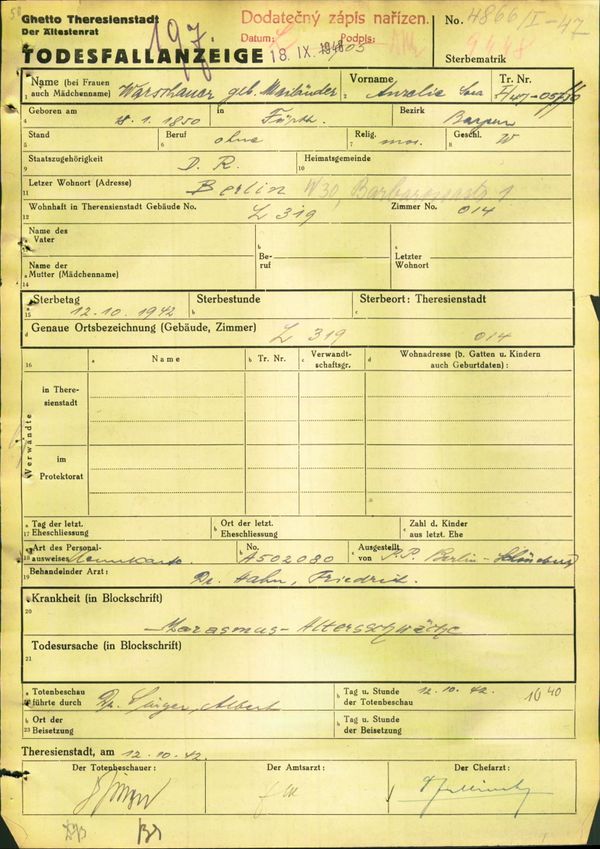 Ghetto Theresienstadt
Der Ältestenrat
TODESFALLANZEIGE
197
Dodatečný zápis nařízen.
Datum: Podpis:
18. IX.
No. 4866/I-47
Sterbematrik
Name (bei Frauen auch Mädchenname) Warschauer geb. Mailänder
Vorname Amalie Sara
Tr. Nr. I/47-05710
Geboren am 8.1.1850 in Fürth. Bezirk Bayern
Stand Beruf ohne Relig. mos. Geschl. W
Staatszugehörigkeit D. R. Heimatsgemeinde
Letzer Wohnort (Adresse) Berlin W30, Barbarossastr 1
Wohnhaft in Theresienstadt Gebäude No. L 319 Zimmer No. 014
Name des Vater
Beruf
Letzter Wohnort
Name der Mutter (Mädchenname)
Sterbetag 12.10.1942 Sterbestunde Sterbeort: Theresienstadt
Genaue Ortsbezeichnung (Gebäude, Zimmer) L 319 014
16 Name Tr. Nr. Verwandtschaftsgr. Wohnadresse (b. Gatten u. Kindern auch Geburtdaten):
Verwandte
in Theresienstadt
im Protektorat
Tag der letzt. Eheschliessung
Ort der letzt. Eheschliessung
Zahl d. Kinder aus letzt. Ehe
Art des Personalausweises Kennkarte No. A502080 Ausgestellt von P.P. Berlin-Schöneberg
Behandelnder Arzt: Dr. Hahn, Friedrich.
Krankheit (in Blockschrift)
Marasmus - Altersschwäche
Todesursache (in Blockschrift)
Totenbeschau führte durch Dr. Albert
Tag u. Stunde der Totenbeschau 12.10.42. 10 40
Ort der Beisetzung
Tag u. Stunde der Beisetzung
Theresienstadt, am 12.10.42.
Der Totenbeschauer: Der Amtsarzt: Der Chefarzt: